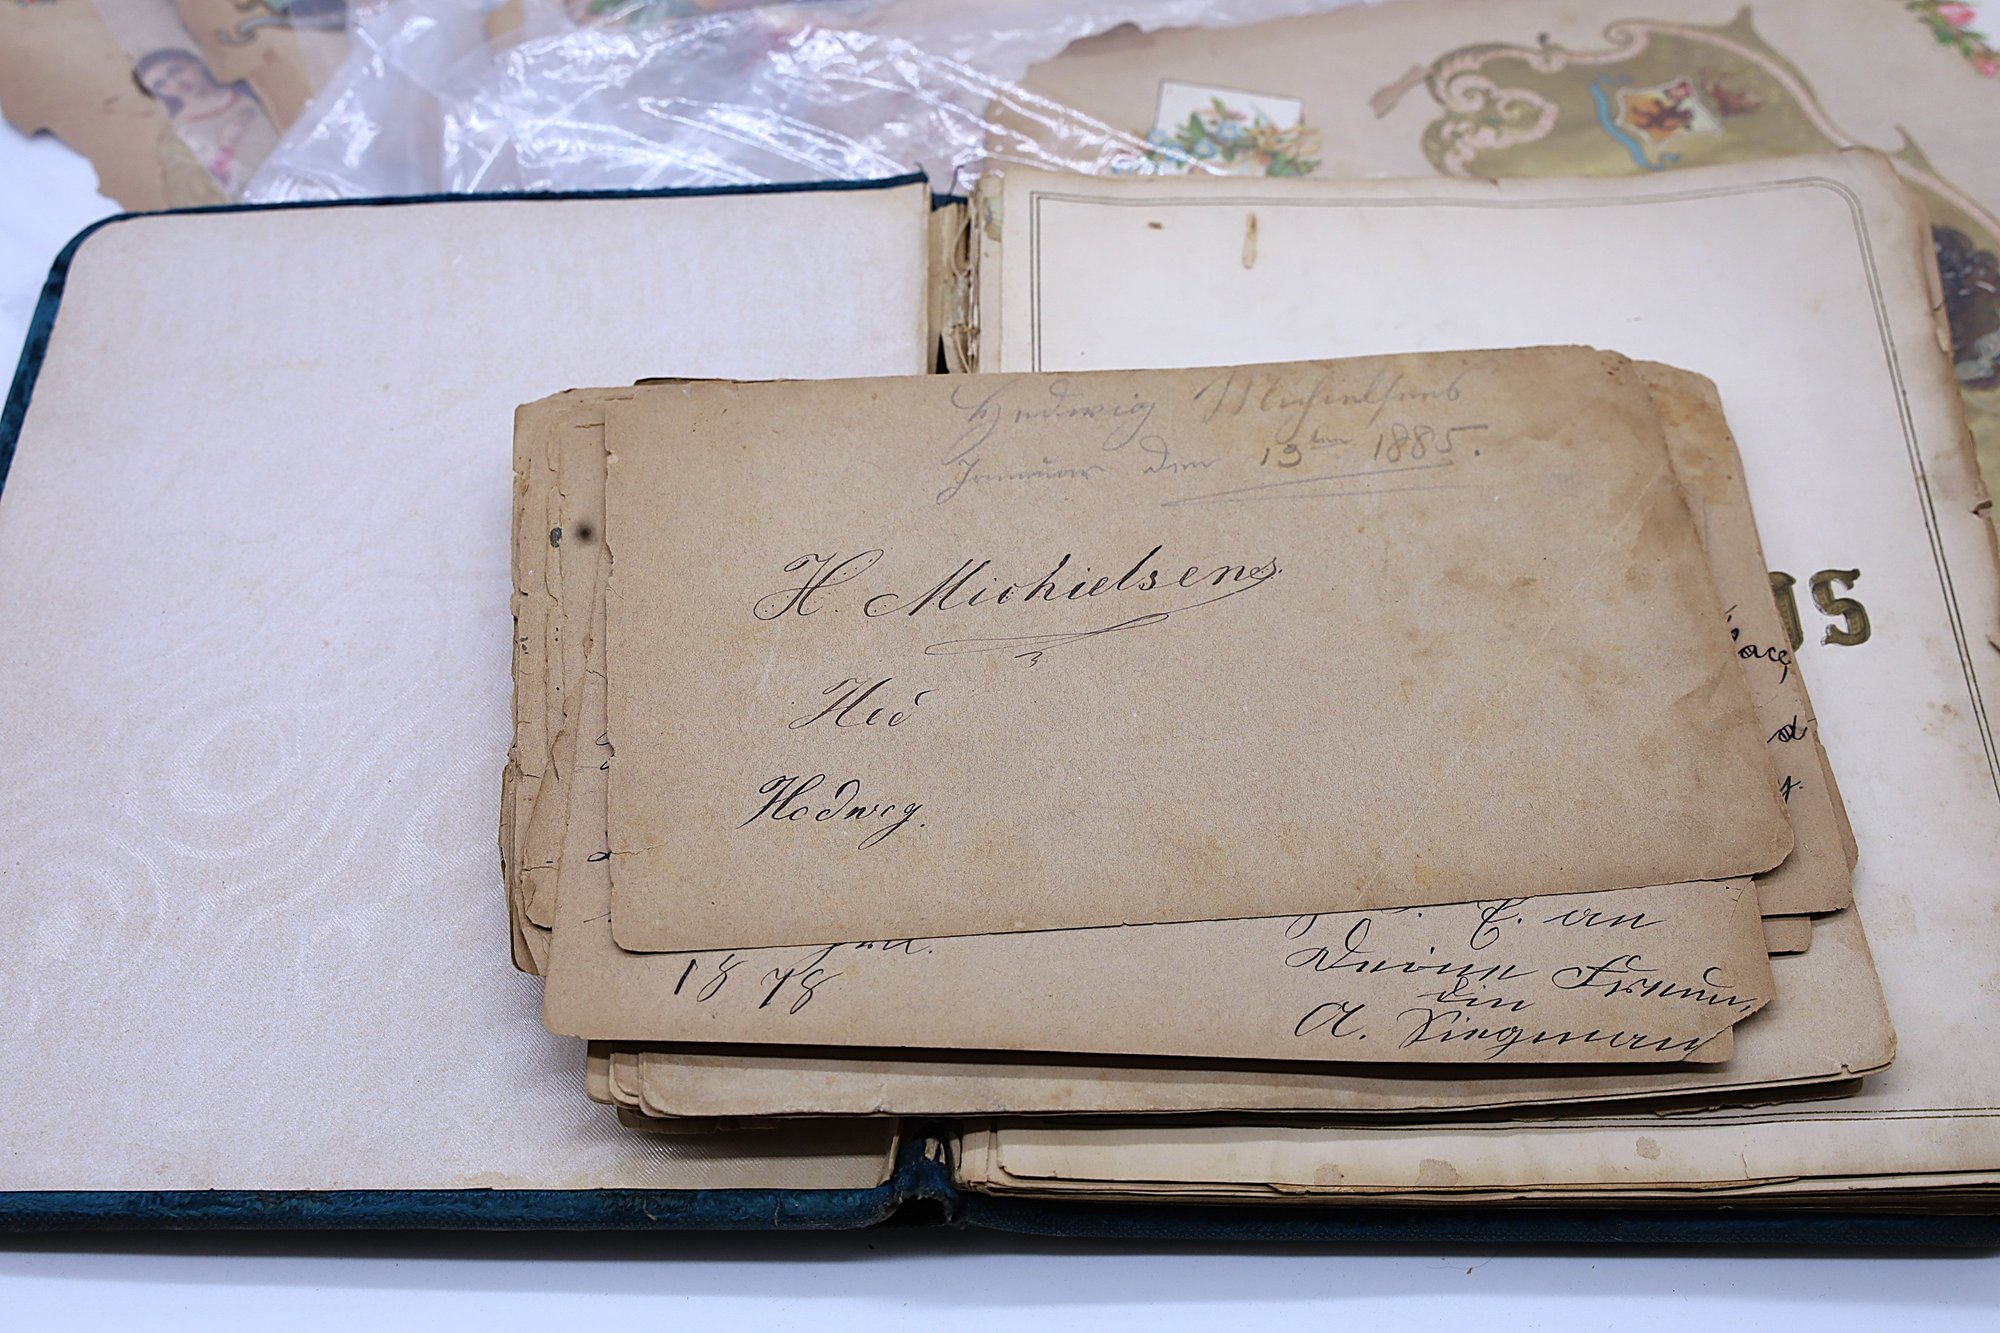 Hedwig Michielsens
Januar den 13ten 1885.
H. Michielsens.
Hed
Hedwig.
1878
E. an
Deine Freun
din
A. Siegman
OS
ace,
d